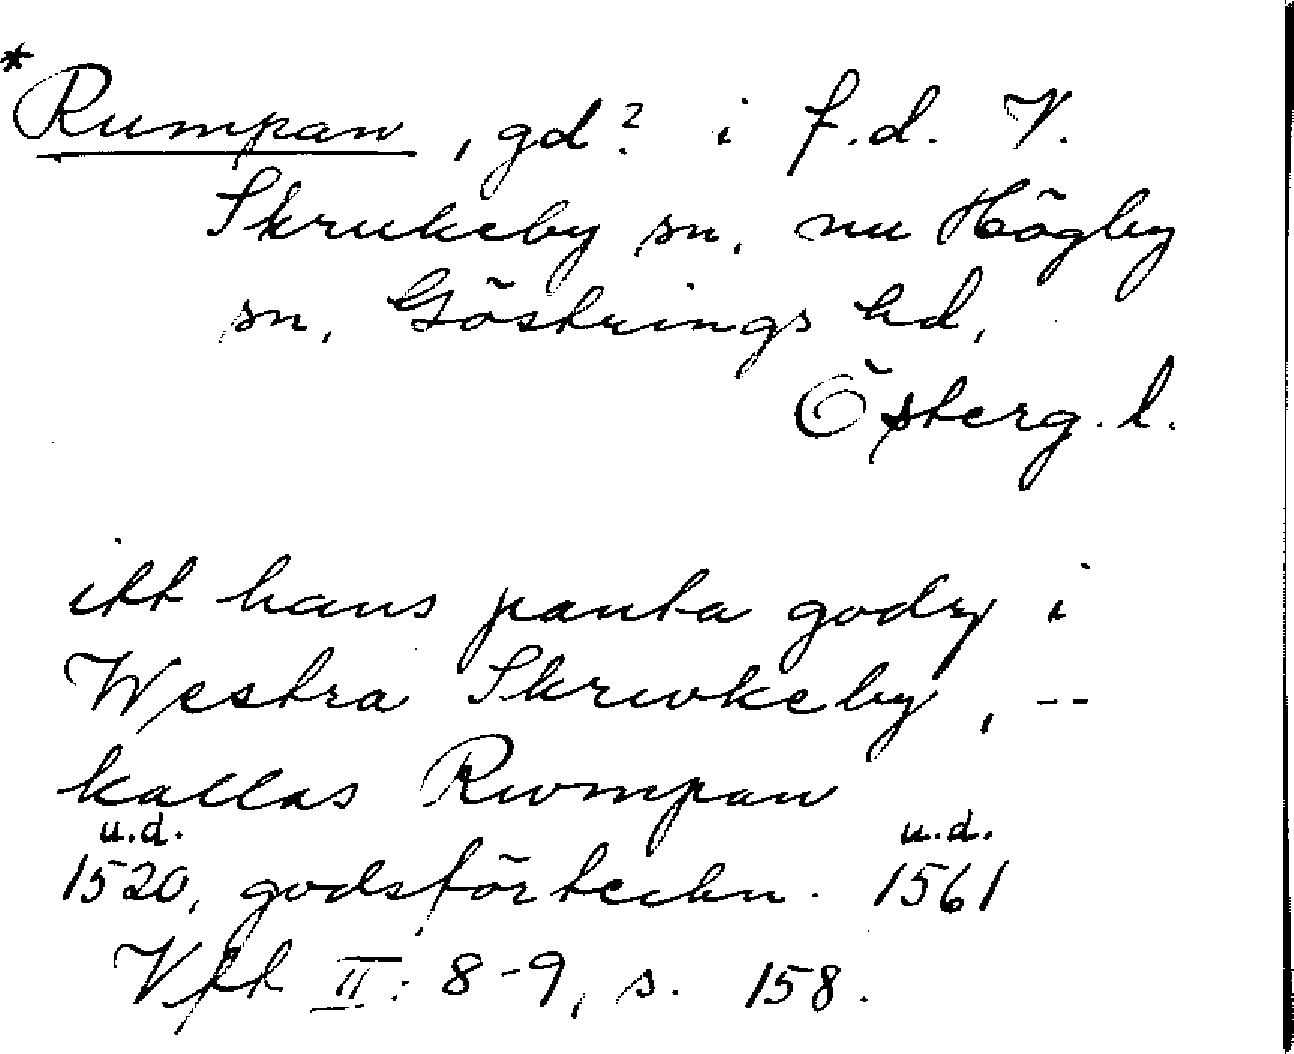 *Rumpan, gd? i f.d. V.
Skrukeby sn, nu Högby
sn, Göstrings hd,
Österg. l.
itt hans panta godz i
Westra Skrwkeby, --
kallas Rwmpan
u.d. u.d.
1520, godsförteckn. 1561
Vfk II: 8-9, s. 158.